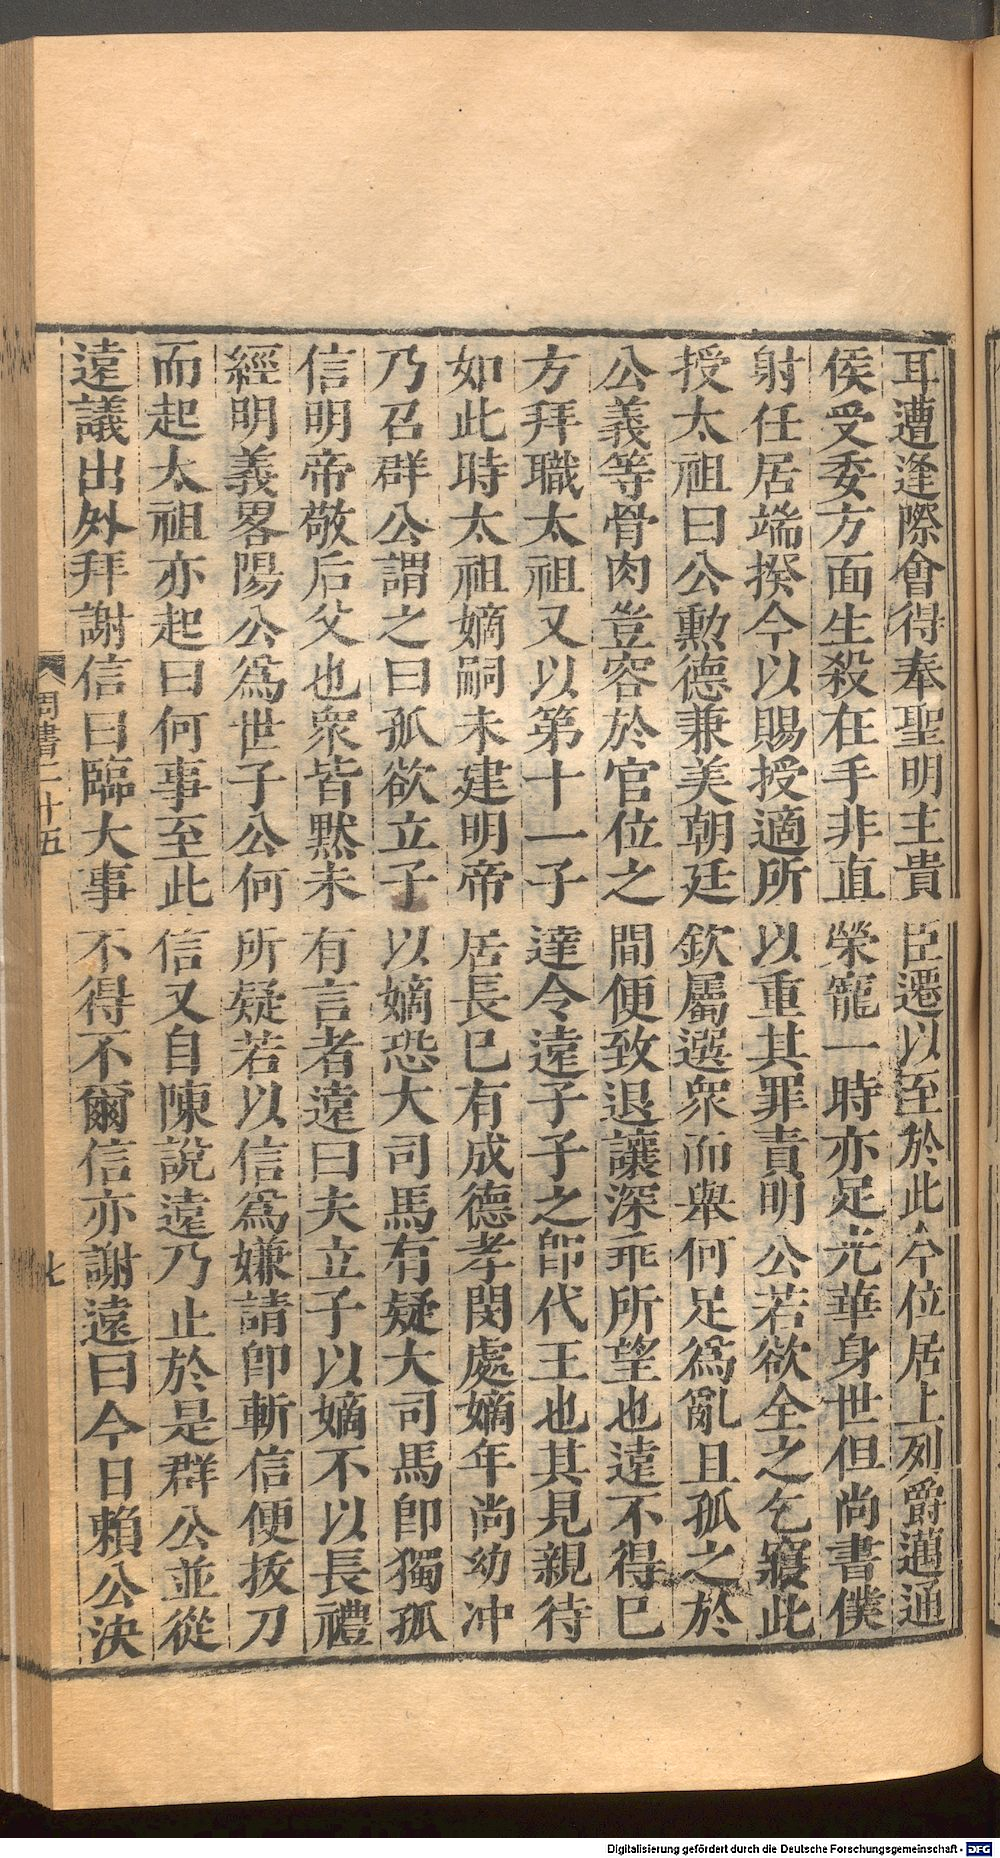 耳遭逢際會得奉聖明主貴臣遷以至於此今位居上列爵邁通
侯受委方面生殺在手非直榮寵一時亦足光華身世但尚書僕
射任居端揆今以賜授適所以重其罪責明公若欲全之乞寢此
授太祖曰公勲德兼美朝廷欽屬選衆而舉何足爲亂且孤之於
公義等骨肉豈容於官位之間便致退讓深乖所望也遠不得巳
方拜職太祖又以第十一子達令遠子子之卽代王也其見親待
如此時太祖嫡嗣未建明帝居長巳有成德孝閔處嫡年尚幼冲
乃召群公謂之曰孤欲立子以嫡恐大司馬有疑大司馬卽獨孤
信明帝敬后父也衆皆默未有言者遠曰夫立子以嫡不以長禮
經明義畧陽公爲世子公何所疑若以信爲嫌請卽斬信便拔刀
而起太祖亦起曰何事至此信又自陳說遠乃止於是群公並從
遠議出外拜謝信曰臨大事不得不爾信亦謝遠曰今日賴公決
周書二十五
七
Digitalisierung gefördert durch die Deutsche Forschungsgemeinschaft - DFG